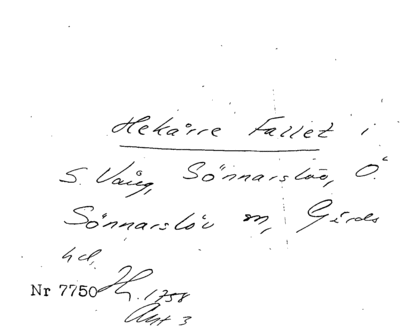 Hekårre Fallet i
S. Vång, Sönnarslöv, Ö.
Sönnarslöv sn, Gärds
hd,
Nr 7750 H. 1758
Akt 3